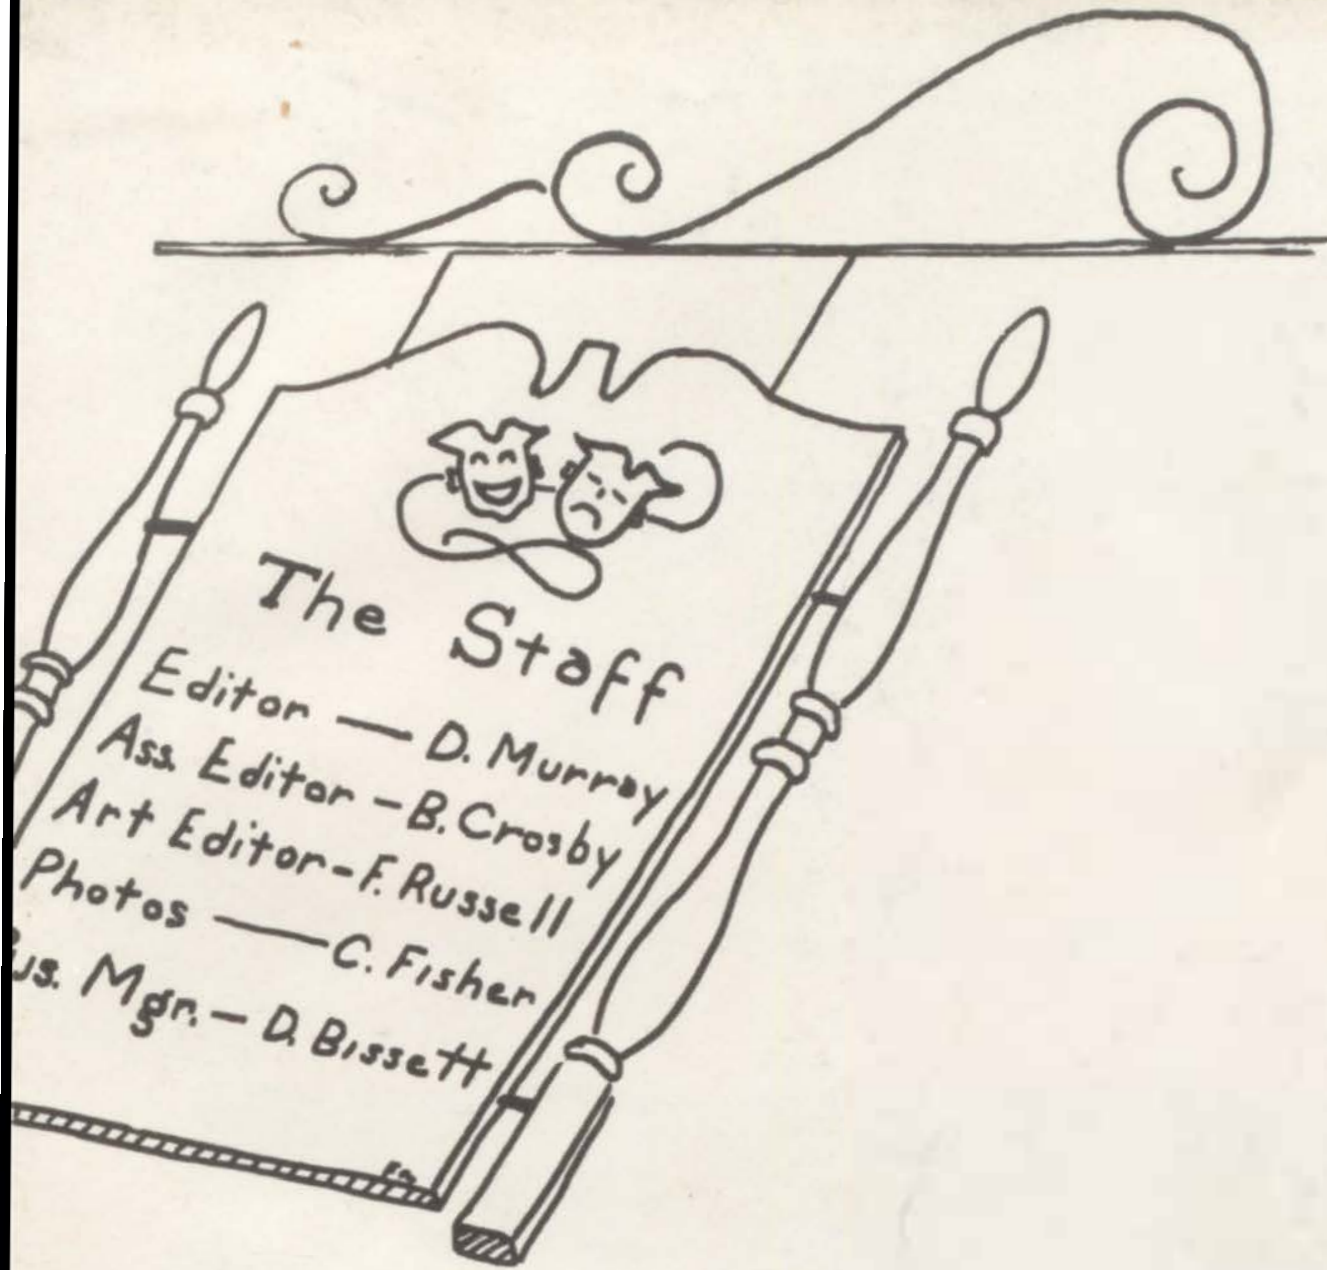 The Staff
Editor — D. Murray
Ass. Editor – B. Crosby
Art Editor – F. Russell
Photos — C. Fisher
Mgr. – D. Bissett